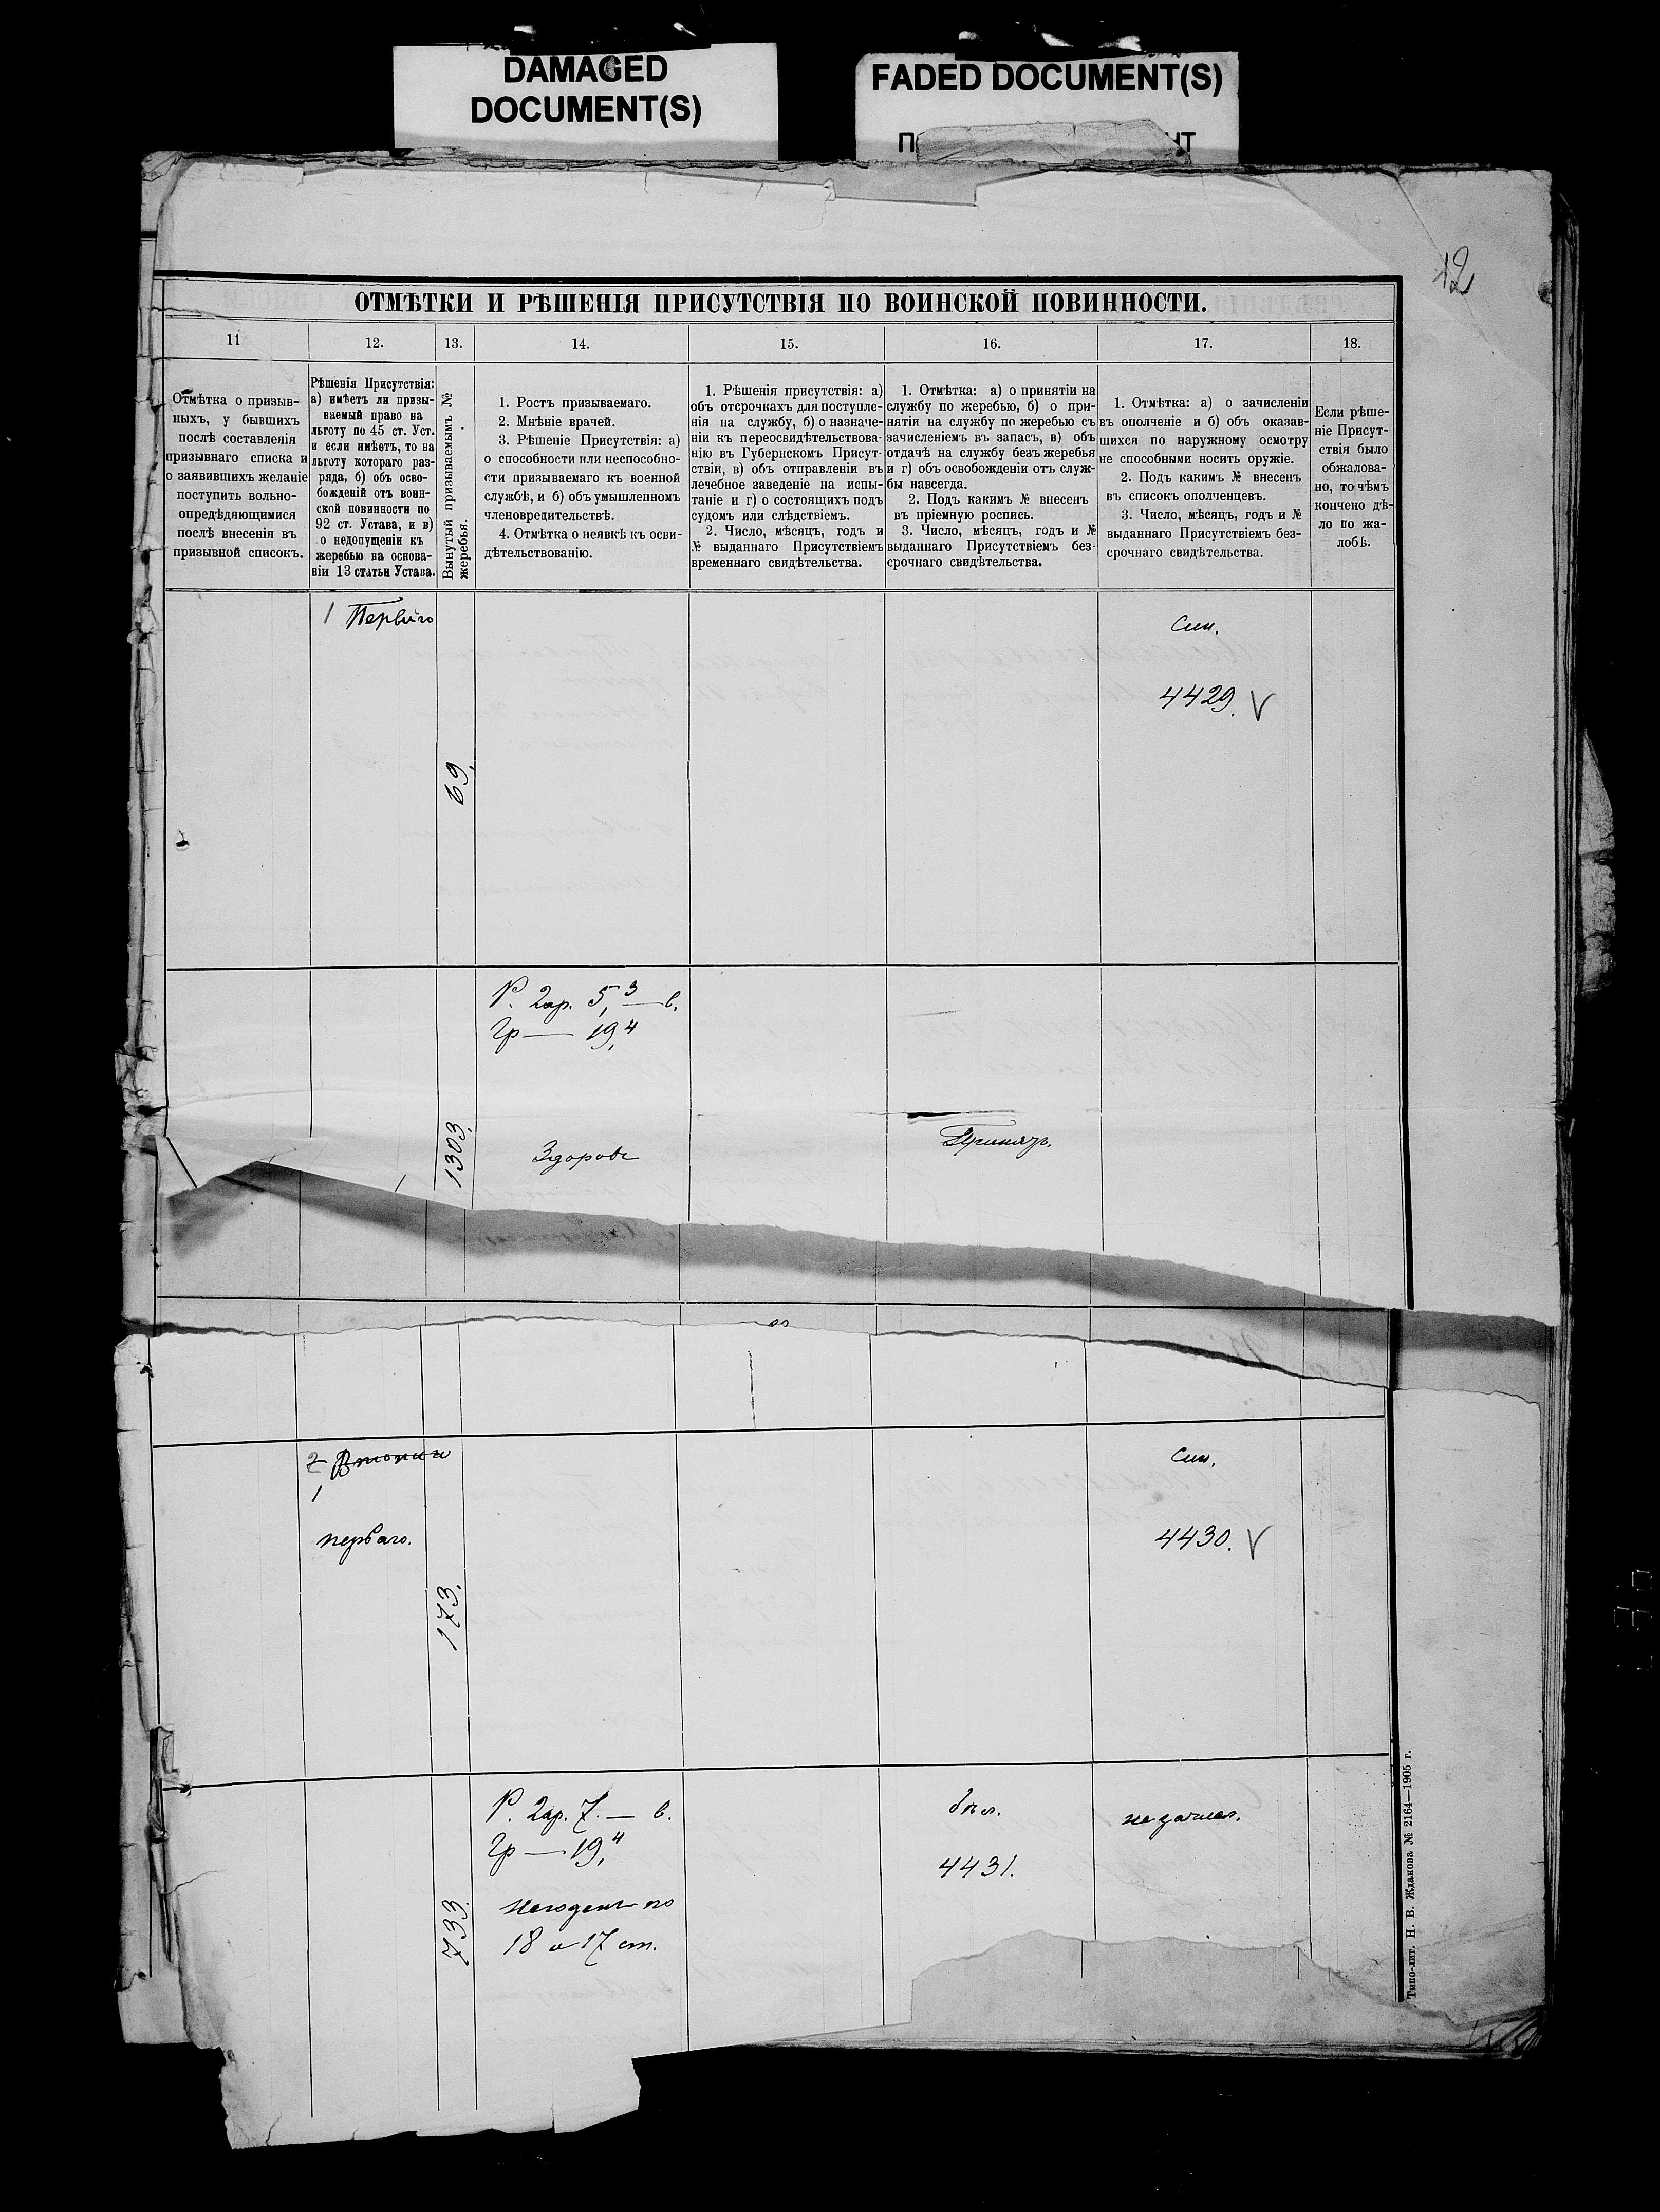 DAMAGED
DOCUMENT(S)
FADED DOCUMENT(S)
42
ОТМѢТКИ И РѢШЕНІЯ ПРИСУТСТВІЯ ПО ВОИНСКОЙ ПОВИННОСТИ.
11
12.
13.
14.
15.
16.
17.
18.
Отмѣтка о призыв-
ныхъ, у бывшихъ
послѣ составленія
призывнаго списка и
о заявившихъ желаніе
поступить вольно-
опредѣдяющимися
послѣ внесенія въ
призывной списокъ.
Рѣшенія Присутствія:
а) имѣетъ ли призы-
ваемый право на
льготу по 45 ст. Уст.
и если имѣетъ, то на
льготу котораго раз-
ряда, б) объ осво-
божденій отъ воин-
ской повинности по
92 ст. Устава, и в)
о недопущеніи къ
жеребью на основа-
ніи 13 статьи Устава.
Вынутый призываемымъ №
жеребья.
1. Ростъ призываемаго.
2. Мнѣніе врачей.
3. Рѣшеніе Присутствія: а)
о способности или неспособно-
сти призываемаго къ военной
службѣ, и б) объ умышленномъ
членовредительствѣ.
4. Отмѣтка о неявкѣ къ осви-
дѣтельствованію.
1. Рѣшенія присутствія: а)
объ отсрочкахъ для поступле-
нія на службу, б) о назначе-
ніи къ переосвидѣтельствова-
нію въ Губернскомъ Присут-
ствіи, в) объ отправленіи въ
лечебное заведеніе на испы-
таніе и г) о состоящихъ подъ
судомъ или слѣдствіемъ.
2. Число, мѣсяцъ, годъ и
№ выданнаго Присутствіемъ
временнаго свидѣтельства.
1. Отмѣтка: а) о принятіи на
службу по жеребью, б) о при-
нятіи на службу по жеребью съ
зачисленіемъ въ запасъ, в) объ
отдачѣ на службу безъ жеребья
и г) объ освобожденіи отъ служ-
бы навсегда.
2. Подъ какимъ № внесенъ
въ пріемную роспись.
3. Число, мѣсяцъ, годъ и №
выданнаго Присутствіемъ без-
срочнаго свидѣтельства.
1. Отмѣтка: а) о зачисленіи
въ ополченіе и б) объ оказав-
шихся по наружному осмотру
не способными носить оружіе.
2. Подъ какимъ № внесенъ
въ списокъ ополченцевъ.
3. Число, мѣсяцъ, годъ и №
выданнаго Присутствіемъ без-
срочнаго свидѣтельства.
Если рѣше-
ніе Присут-
ствія было
обжалова-
но, то чѣмъ
кончено дѣ-
ло по жа-
лобѣ.
1 Перваго
69.
Син.
4429. V
Р. 2ар. 5,3— в.
Гр — 19,4
1303.
Здоровъ
Принятъ.
2 Втораго
1
перваго.
173.
Син.
4430. V
Р. 2ар. 7. — в.
Гр — 19,4
Негоденъ по
18 и 17 ст.
733.
бѣл.
4431.
не зачисл.
Типо-лит. Н. В. Жданова № 2164—1905 г.